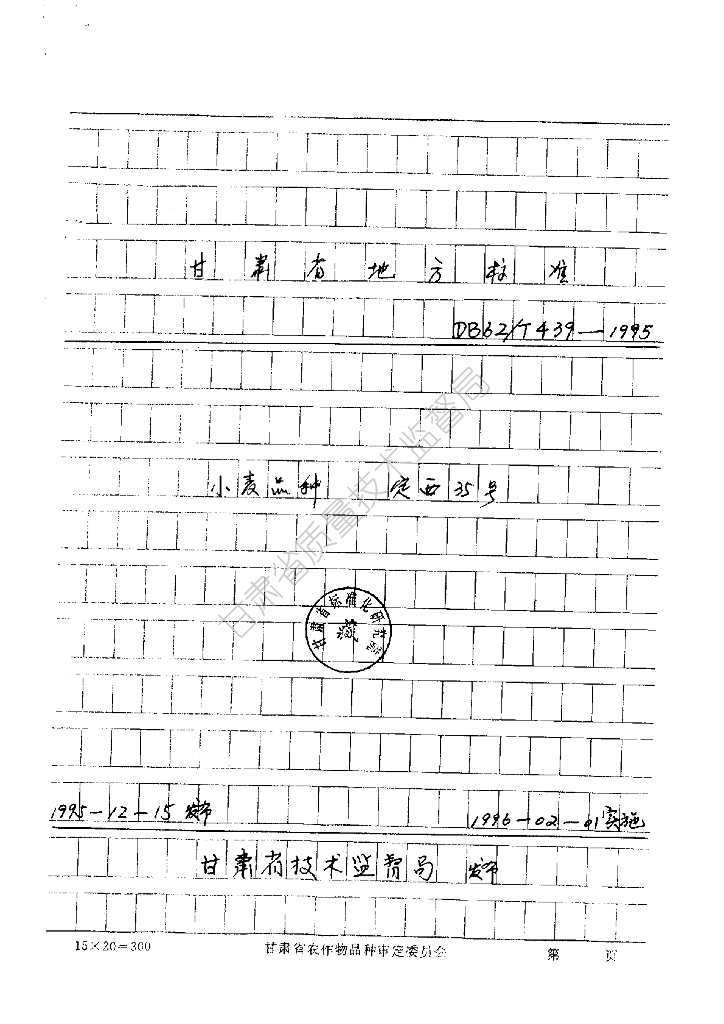 甘肃省地方标准
DB62/T 439—1995
小麦品种 定西35号
甘肃省质量技术监督局
甘肃省标准化研究
藏
1995-12-15发布
1996-02-01实施
甘肃省技术监督局 发布
15×20=300 甘肃省农作物品种审定委员会 第 页